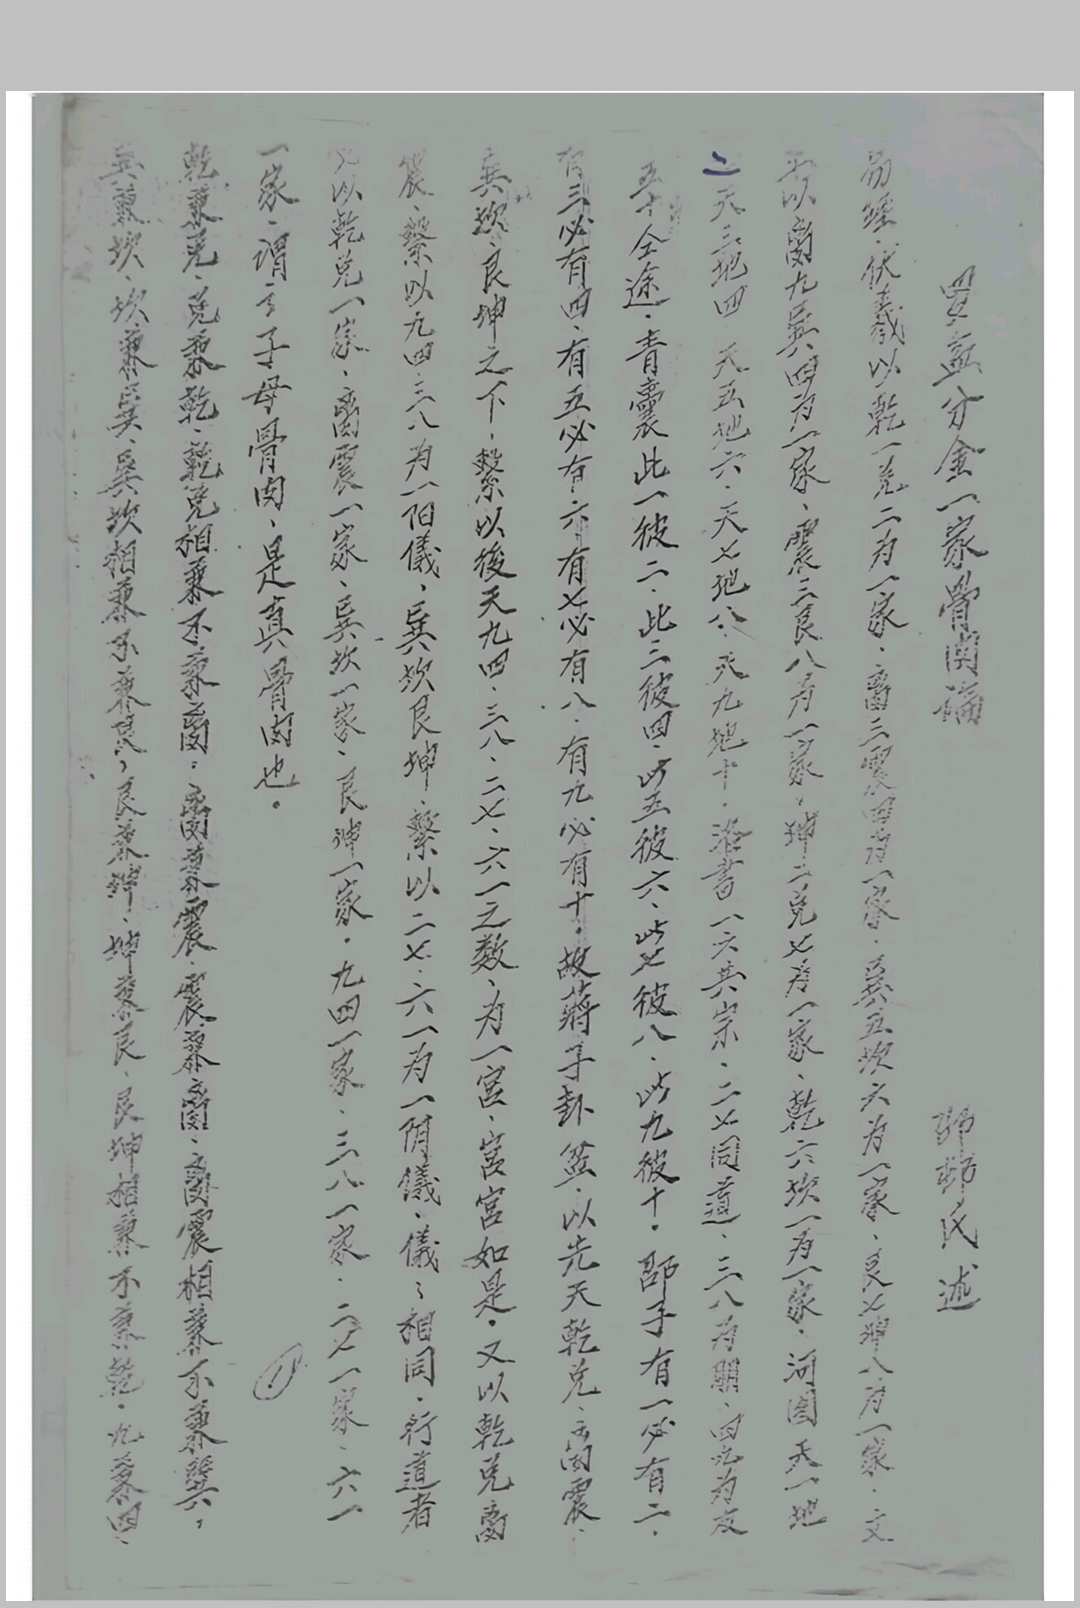 買盆分金一家骨肉論 邵邨氏述
易經、伏羲以乾一兌二為一家、离三震四為一家、巽五坎六為一家、艮七坤八為一家、文
王以离九巽四為一家、震三艮八為一家、坤二兌七為一家、乾六坎一為一家、河图天一地
二天三地四、天五地六、天七地八、天九地十、洛書一六共宗、二七同道、三八為朋、四九為友
五十仝途、青囊此一彼二、此三彼四、此五彼六、此七彼八、此九彼十。邵子有一必有二、
有三必有四、有五必有六、有七必有八、有九必有十、故蔣子卦盆、以先天乾兌、离震、
巽坎、艮坤之下、繫以後天九四、三八、二七、六一之数、为一宮、宮宮如是。又以乾兌离
震、繫以九四、三八为一阳儀、巽坎艮坤、繫以二七、六一为一阴儀、儀々相同、行道者
又以乾兌一家、离震一家、巽坎一家、艮坤一家、九四一家、三八一家、二七一家、六一
一家、謂之子母骨肉、是真骨肉也。
①
乾兼兌、兌兼乾、乾兌相兼不兼离、离兼震、震兼离、离震相兼不兼巽，
巽兼坎、坎兼巽、巽坎相兼不兼艮，艮兼坤、坤兼艮、艮坤相兼不兼乾、九兼四、